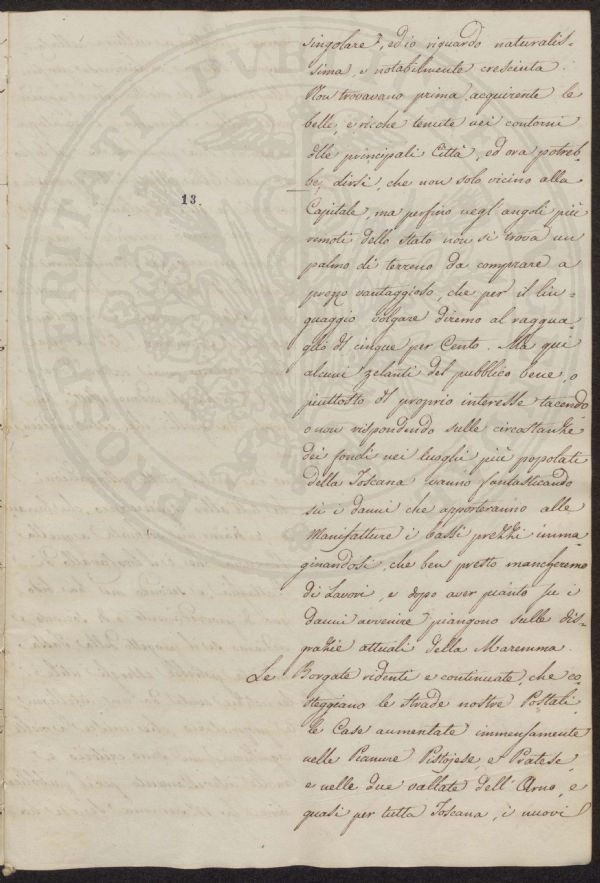 singolare, ed io riguardo naturalis-
sima, e notabilmente cresciuta.
Non trovavano prima acquirente le
belle, e ricche tenute nei contorni
dlle principali Città, ed ora potreb-
be, dirsi, che non solo vicino alla
13.
Capitale, ma perfino negl'angoli più
remoti dello Stato non si trova un
palmo di terreno da comprare a
prezzo vantaggioso, che per il lin-
guaggio volgare diremo al raggua-
glio dl cinque per Cento. Ma qui
alcuni zelanti del pubblico bene, o
piuttosto dl proprio interesse tacendo
o non rispondendo sulle circostanze
dei fondi nei luoghi più popolati
della Toscana vanno fantasticando
su i danni che apporteranno alle
Manifatture i bassi prezzi imma-
ginandosi, che ben presto mancheremo
di Lavori, e dopo aver pianto su i
danni avvenire piangono sulle dis-
grazie attuali della Maremma.
Le Borgate ridenti e continuate, che co-
steggiano le strade nostre Postali,
le Case aumentate immensamente
nelle Pianure Pistojese, e Pratese,
e nelle due vallate dell'Arno, e
quasi per tutta Toscana, i nuovi
PROSPERITATI PUB